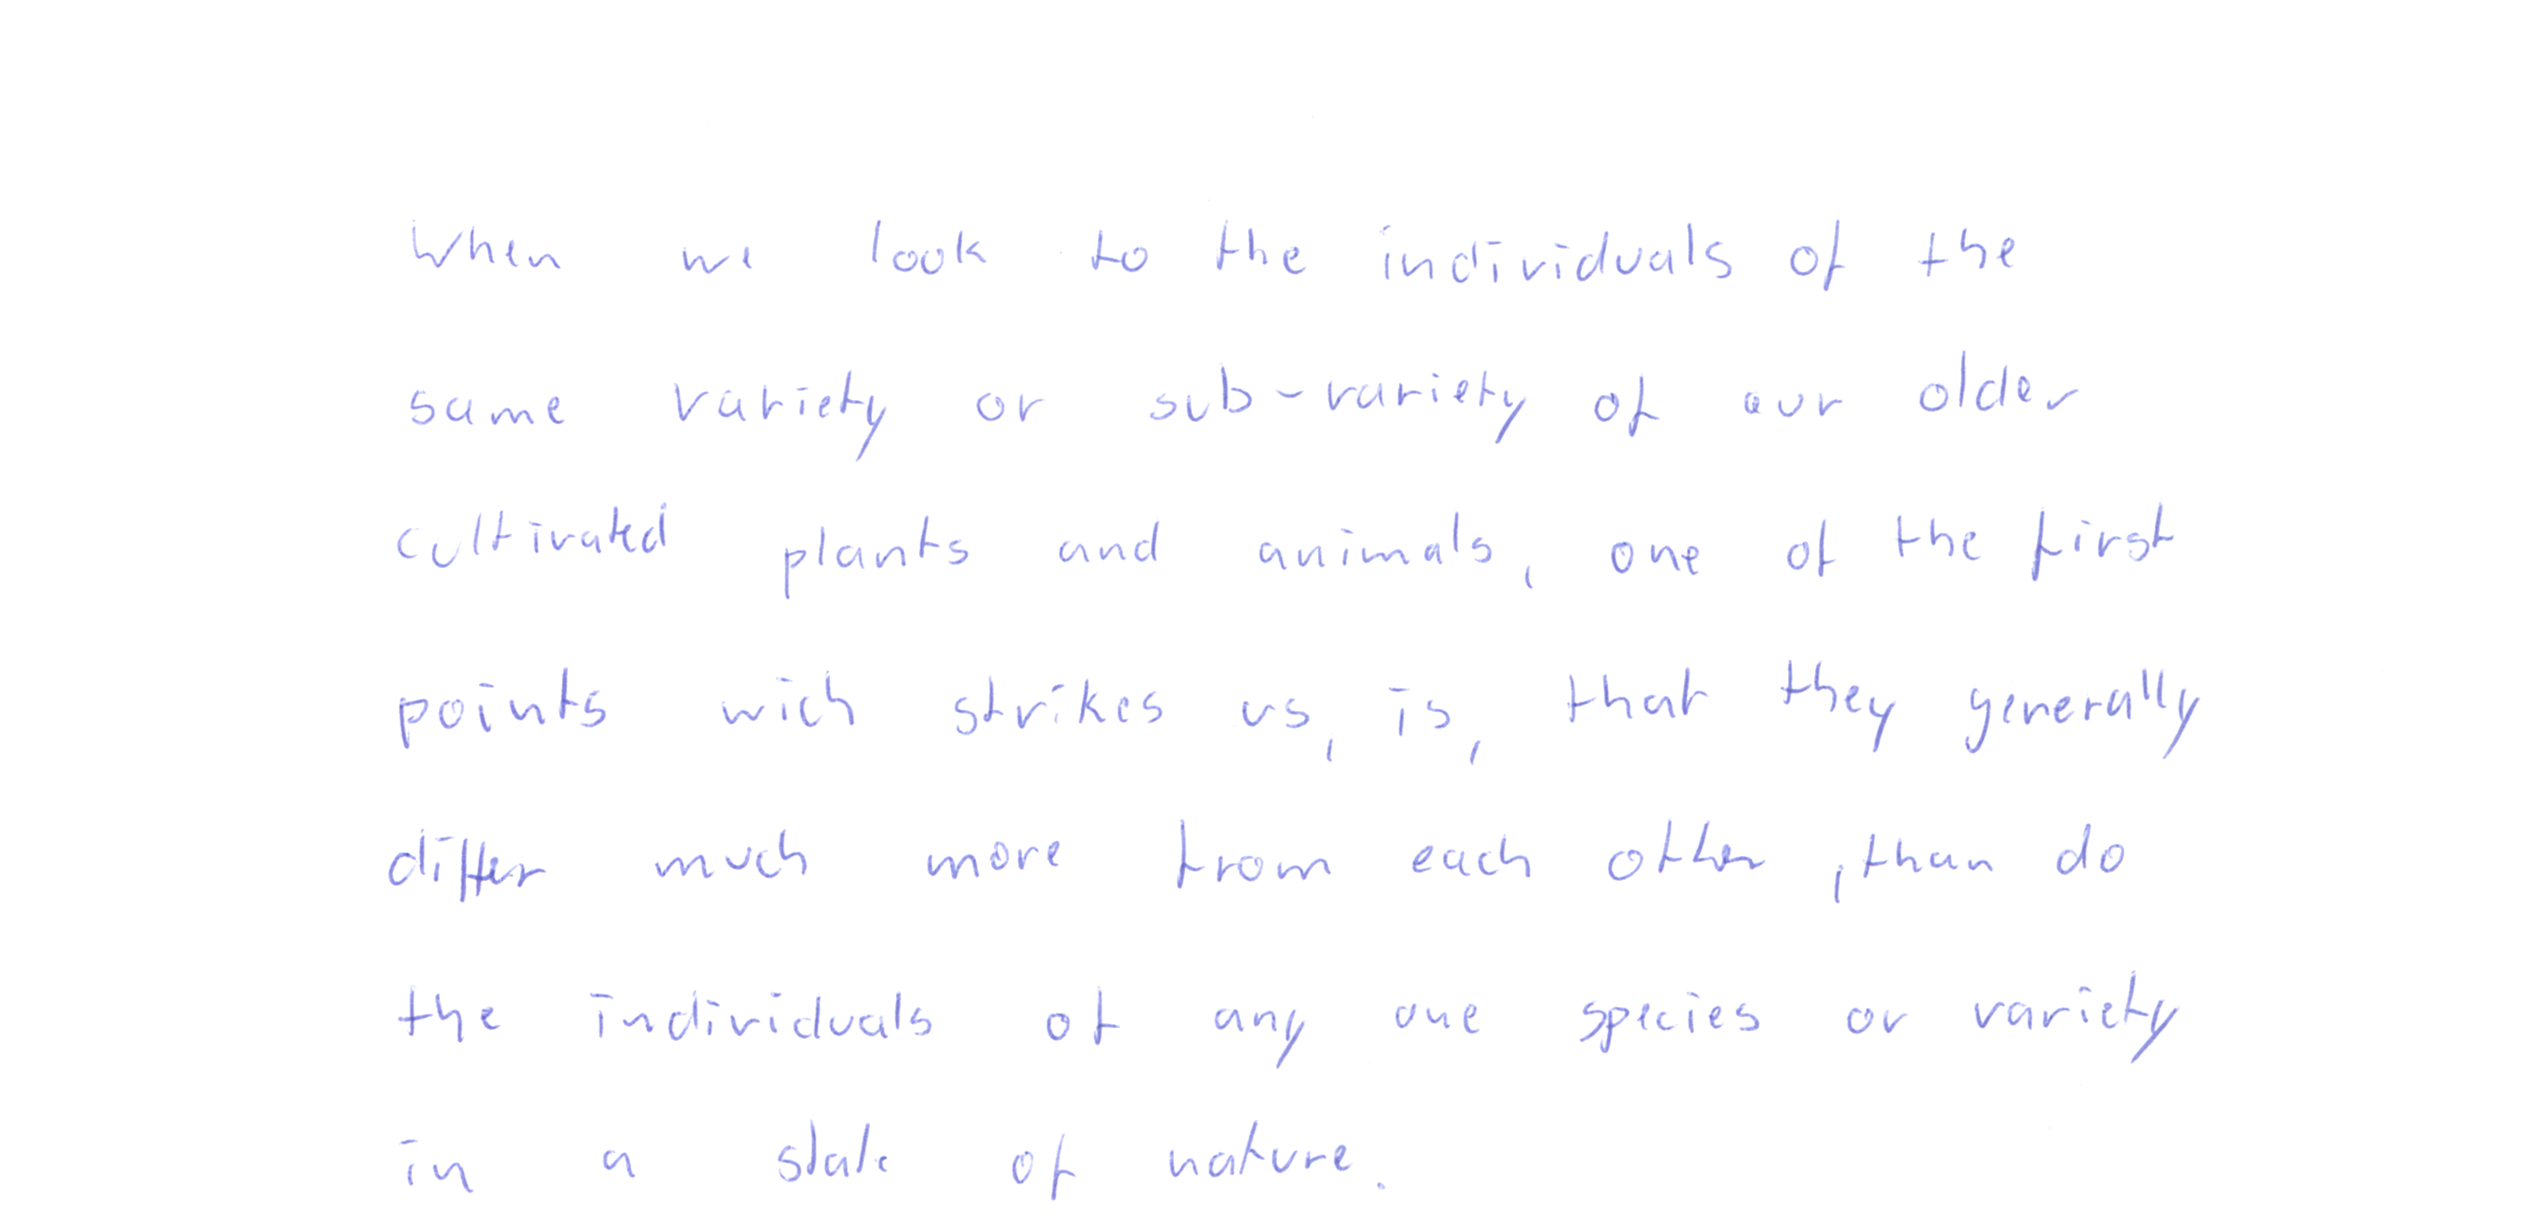 When we look to the individuals of the
same variety or sub-variety of our older
cultivated plants and animals, one of the first
points wich strikes us, is, that they generally
differ much more from each other, than do
the individuals of any one species or variety
in a state of nature.